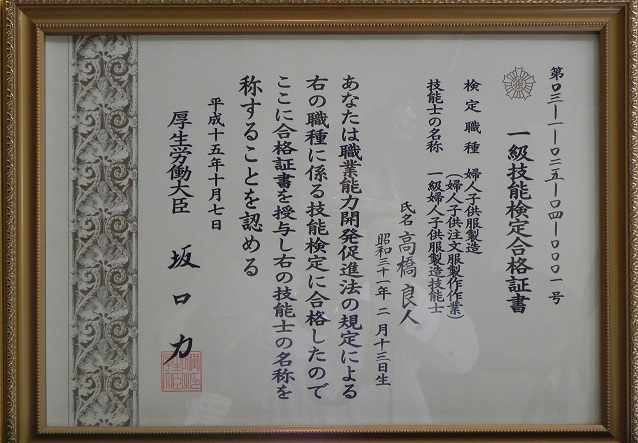 第03-1-025-04-0001号
一級技能検定合格証書
検定職種 婦人子供服製造
(婦人子供注文服製作作業)
技能士の名称 一級婦人子供服製造技能士
氏名 高橋良人
昭和三十一年二月十三日生
あなたは職業能力開発促進法の規定による
右の職種に係る技能検定に合格したので
ここに合格証書を授与し右の技能士の名称を
称することを認める
平成十五年十月七日
厚生労働大臣 坂口力